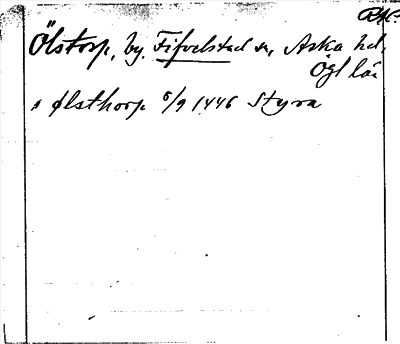 Ölstorp, by. Fifvelstad sn, Aska hd,
Ögl län
s Ølsthorp 5/9 1446 Styra